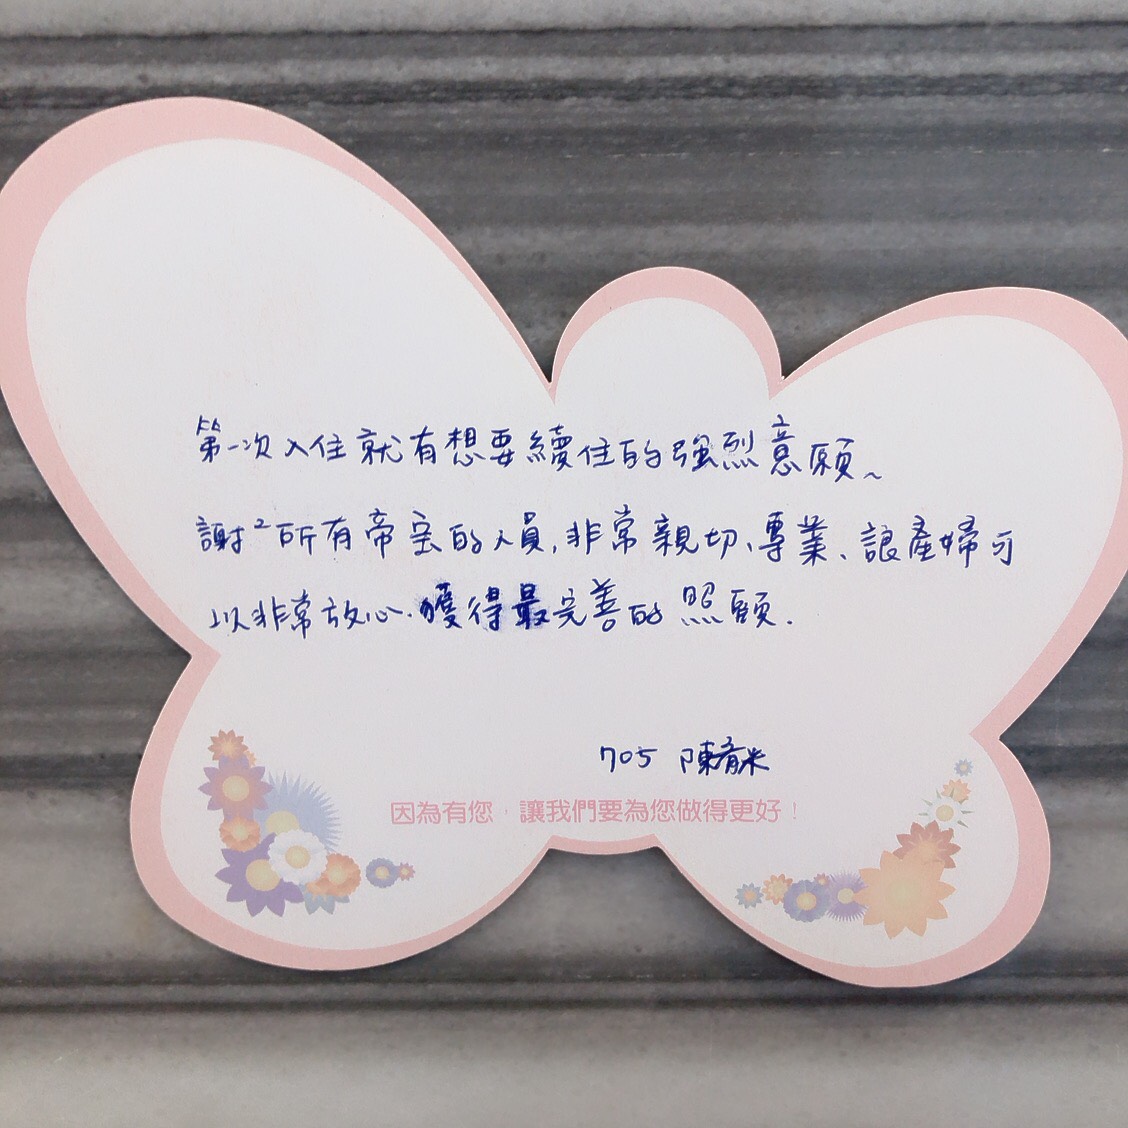 第一次入住就有想要續住的強烈意願~
謝²所有帝宝的人員,非常親切、專業、讓產婦可
以非常放心.獲得最完善的照顧.
705 陳
因為有您，讓我們要為您做得更好！